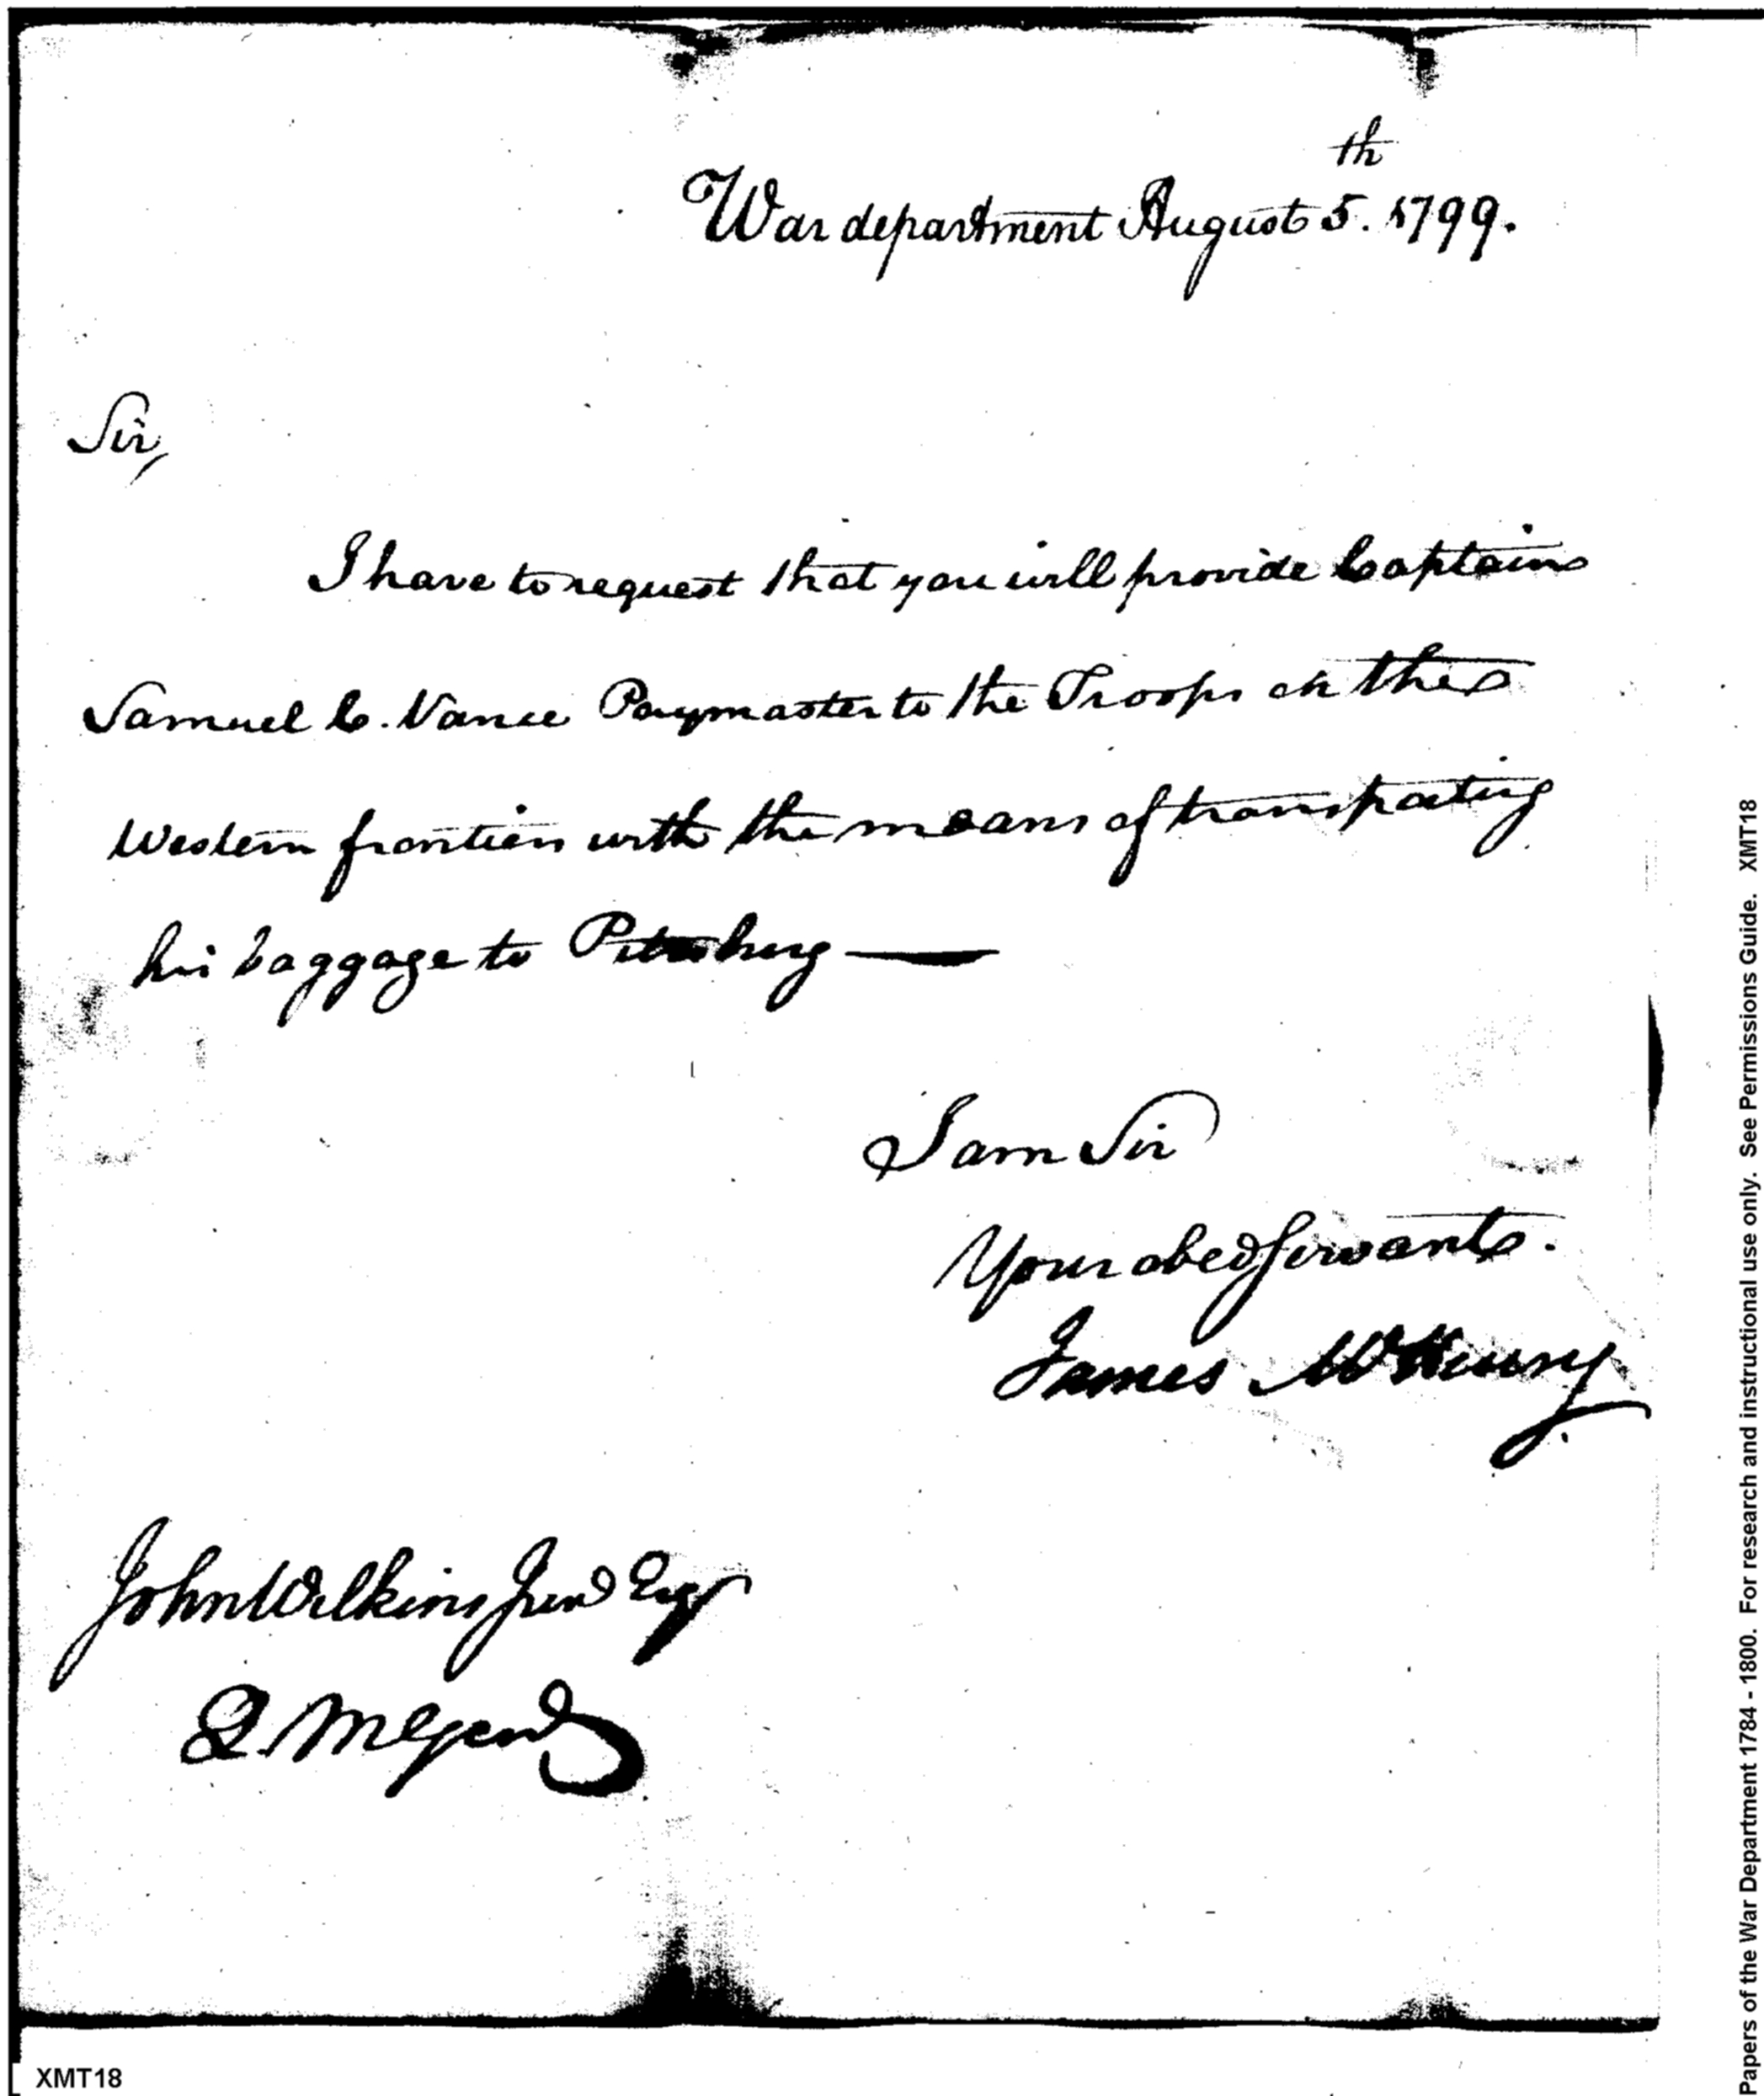 War department August 5th. 1799.
Sir,
I have to request that you will provide Captain
Samuel C. Vance Paymaster to the Troops on the
Western frontiers with the means of transporting
his baggage to Pittsburg —
I am Sir
Your obed servant.
James McHenry
John Wilkins Junr Esqr
Q. M Genl
XMT18
Papers of the War Department 1784 - 1800. For research and instructional use only. See Permissions Guide. XMT18